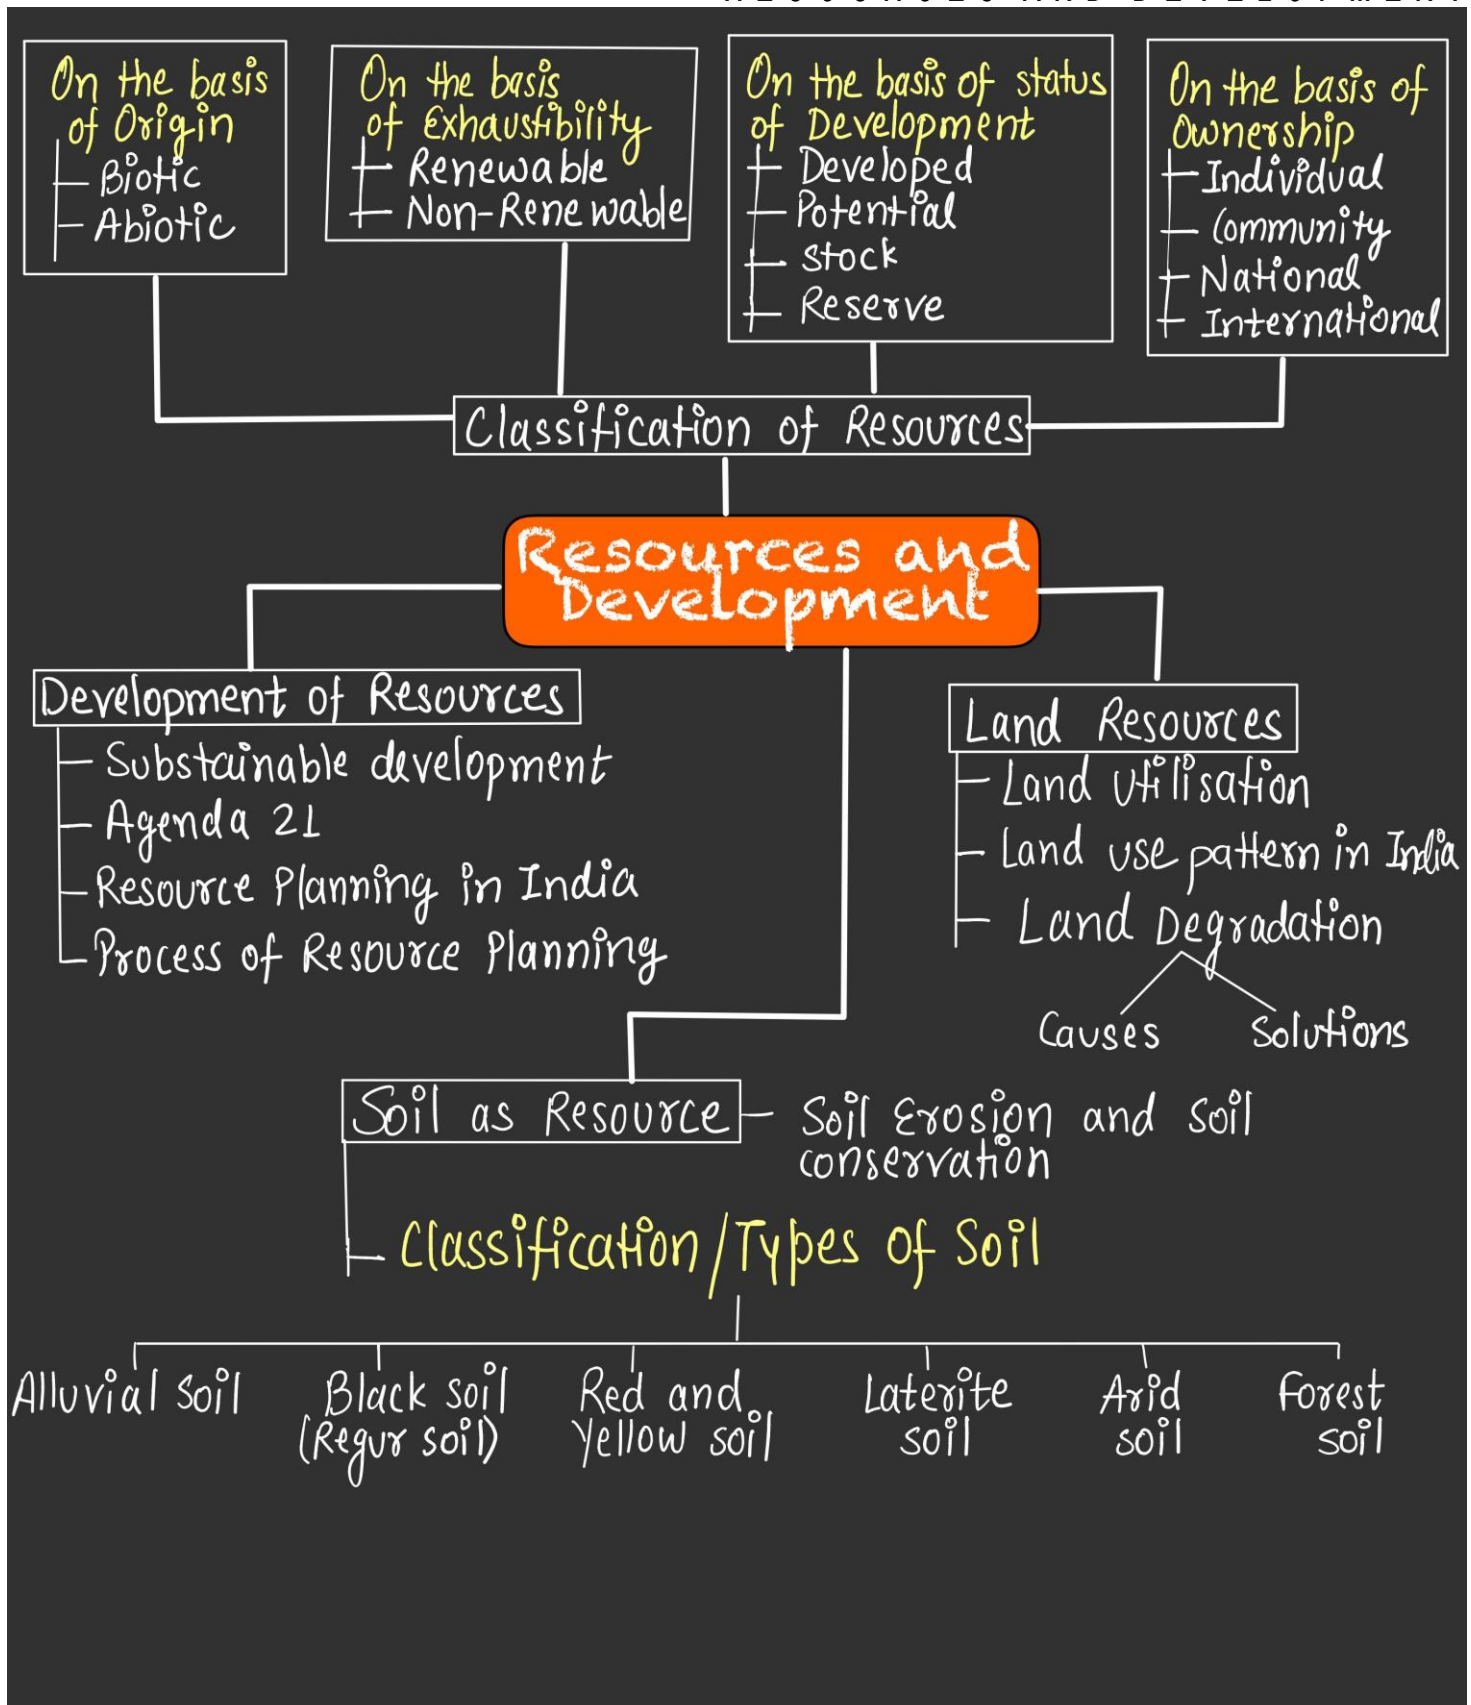 On the basis
of Origin
Biotic
Abiotic
On the basis
of Exhaustibility
Renewable
Non-Renewable
On the basis of status
of Development
Developed
Potential
Stock
Reserve
On the basis of
Ownership
Individual
Community
National
International
Classification of Resources
Resources and
Development
Development of Resources
Substainable development
Agenda 21
Resource Planning in India
Process of Resource Planning
Land Resources
Land Utilisation
Land use pattern in India
Land Degradation
Causes
Solutions
Soil as Resource
Soil Erosion and Soil
conservation
Classification/Types of Soil
Alluvial Soil
Black soil
(Regur soil)
Red and
Yellow soil
Laterite
soil
Arid
soil
Forest
soil